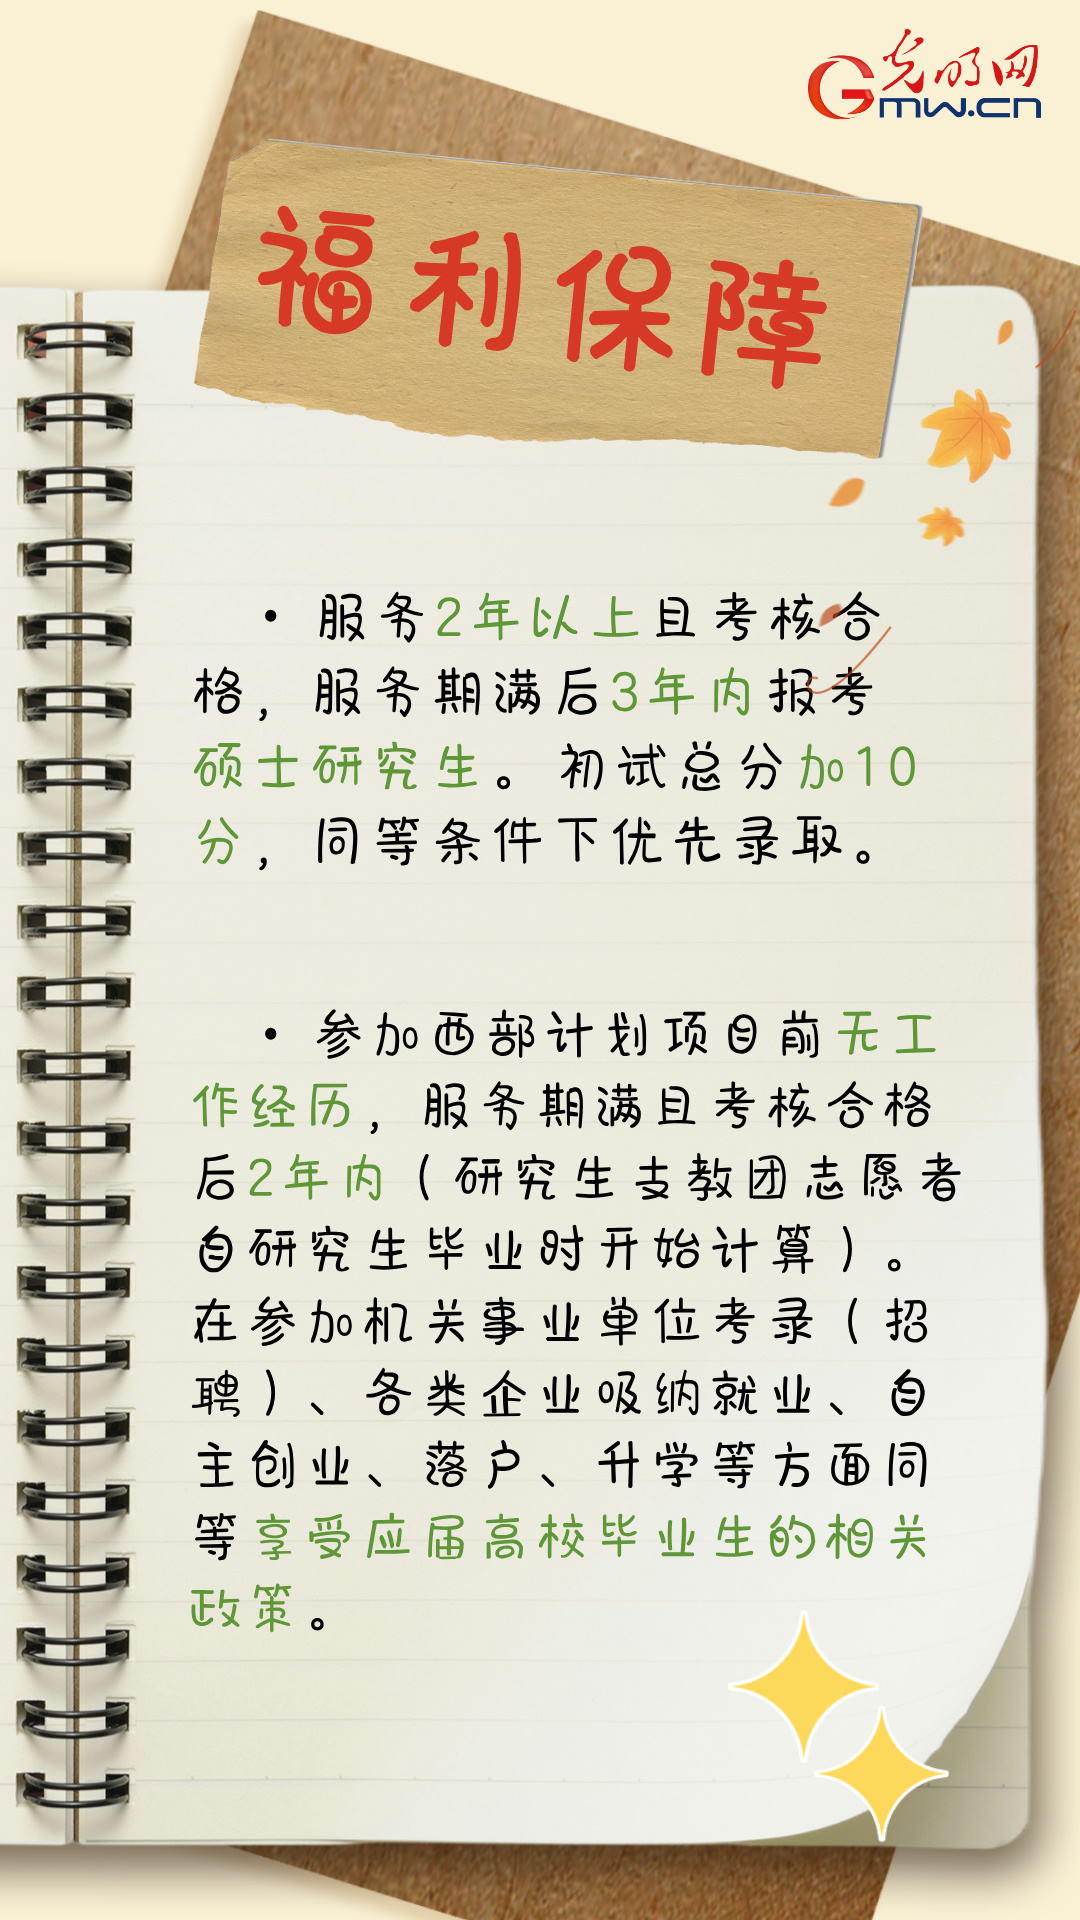 光明网
GMW.CN
福利保障
·服务2年以上且考核合
格，服务期满后3年内报考
硕士研究生。初试总分加10
分，同等条件下优先录取。
·参加西部计划项目前无工
作经历，服务期满且考核合格
后2年内（研究生支教团志愿者
自研究生毕业时开始计算）。
在参加机关事业单位考录（招
聘）、各类企业吸纳就业、自
主创业、落户、升学等方面同
等享受应届高校毕业生的相关
政策。